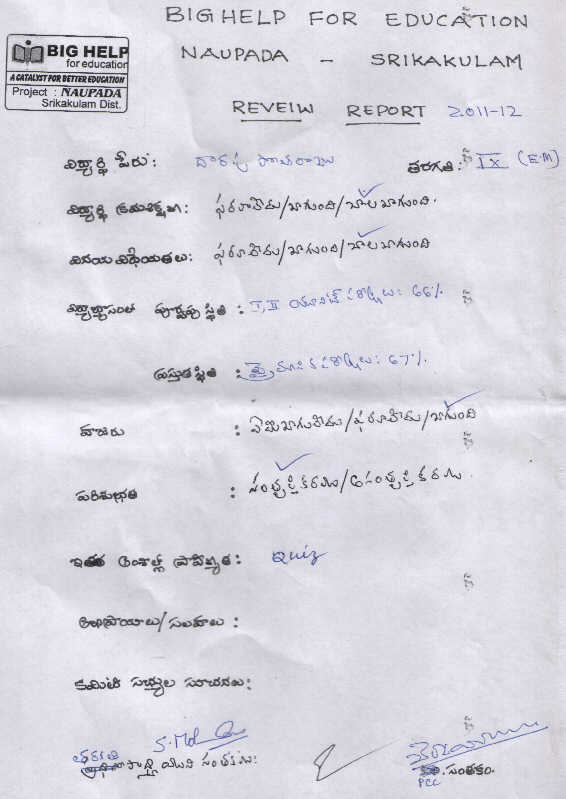 BIG HELP FOR EDUCATION
NAUPADA - SRIKAKULAM
BIG HELP
for education
A CATALYST FOR BETTER EDUCATION
Project : NAUPADA
Srikakulam Dist.
REVEIW REPORT 2011-12
విద్యార్థి పేరు: తరగతి: IX (E.M)
విద్యార్థి క్రమశిక్షణ: ఫరవాలేదు/బాగుంది/చాలబాగుంది.
వినయవిధేయతలు: ఫరవాలేదు/బాగుంది/చాలబాగుంది
పూర్వపు స్థితి : I, II యూనిట్ పరీక్షలు: 66%
ప్రస్తుతస్థితి : త్రైమాసిక పరీక్షలు: 67%.
హాజరు : ఏమిబాగులేదు/ఫరవాలేదు/బాగుంది
పరిశుభ్రత : సంతృప్తికరము/అసంతృప్తికరము.
ఇతర అంశాల్లో ప్రావీణ్యత: Quiz
అభిప్రాయాలు/సలహాలు :
కమిటీ సభ్యుల సూచనలు:
తరగతి S. Md
సంతకము:
సంతకం.
PCC